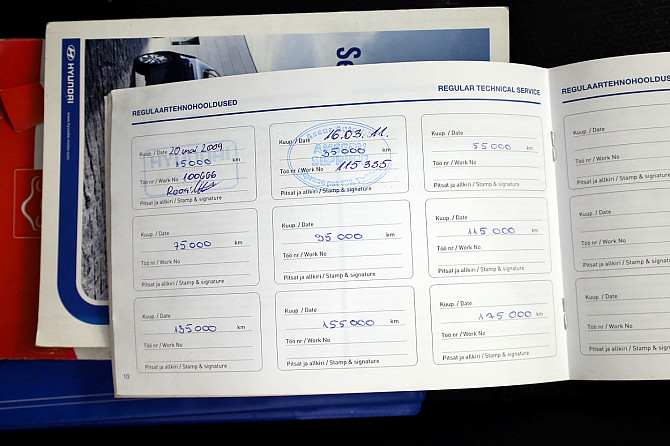 HYUNDAI
Se
REGULAARTEHNOHOOLDUSED
REGULAR TECHNICAL SERVICE
REGULAARTEHNOHOOLDUS
Kuup. / Date 20 mai 2009
15000 km
Töö nr / Work No 100666
Pitsat ja allkiri / Stamp & signature
Kuup. / Date 16.03.11.
35000 km
Töö nr / Work No 115335
Pitsat ja allkiri / Stamp & signature
Kuup. / Date
55000 km
Töö nr / Work No
Pitsat ja allkiri / Stamp & signature
Kuup. / Date
75000 km
Töö nr / Work No
Pitsat ja allkiri / Stamp & signature
Kuup. / Date
95000 km
Töö nr / Work No
Pitsat ja allkiri / Stamp & signature
Kuup. / Date
115000 km
Töö nr / Work No
Pitsat ja allkiri / Stamp & signature
Kuup. / Date
135000 km
Töö nr / Work No
Pitsat ja allkiri / Stamp & signature
Kuup. / Date
155000 km
Töö nr / Work No
Pitsat ja allkiri / Stamp & signature
Kuup. / Date
175000 km
Töö nr / Work No
Pitsat ja allkiri / Stamp & signature
Kuup. / Date
Töö nr / Work No
Pitsat ja allkiri / Stamp & si
Kuup. / Date
Töö nr / Work No
Pitsat ja allkiri / Stamp & s
Kuup. / Date
Töö nr / Work No
Pitsat ja allkiri / Stamp &
10